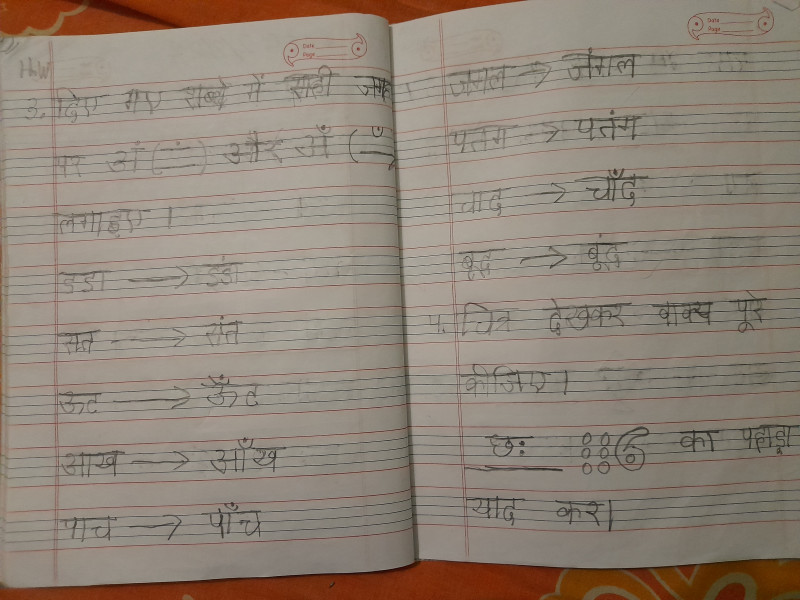 Date
Page
H.W
3. दिए गए शब्दों में सही जगह
पर अं (ं) और अँ (ँ)
लगाइए।
डडा → डंडा
सत → संत
ऊट → ऊँट
आख → आँख
पाच → पाँच
Date
Page
जगल → जंगल
पतग → पतंग
चाद → चाँद
बूद → बूंद
4. चित्र देखकर वाक्य पूरे
कीजिए।
छः 6 का पहाड़ा
याद कर।